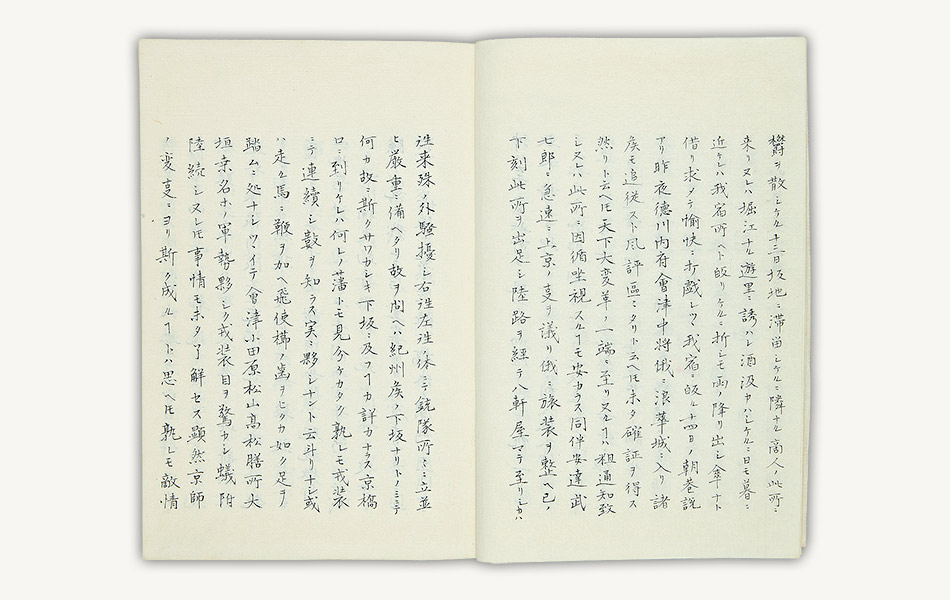 欝ヲ散シケル十三日坂地ニ滞畄シケルニ隣ナル商人ノ此所ニ
来リヌレハ堀江ナル遊里ニ誘ハレ酒汲カハシケルニ日モ暮ニ
近ケレハ我宿所ヘト皈リケルニ折シモ雨ノ降リ出シ傘ナト
借リ求メテ愉快ニ打戯レツヽ我宿ニ皈ル十四日ノ朝巷説
アリ昨夜徳川内府會津中将俄ニ浪華城ニ入リ諸
矦モ追従スト風評區ニタリト云ヘ𪜈未タ確証ヲ得ス
然リト云ヘ𪜈天下大変革ノ一端ニ至リヌルヿハ粗通知致
シヌレハ此所ニ因循坐視スルヿモ安カラス同伴安達武
七郎ニ急速ニ上京ノ叓ヲ議リ俄ニ旅装ヲ整ヘ已ノ
下刻此所ヲ出足シ陸路ヲ経テ八軒屋マテ至リシカハ
往来殊ノ外騒擾シ右往左往ノ休ニテ銃隊所ミミ立並
ヒ厳重ニ備ヘタリ故ヲ問ヘハ紀州矦ノ下坂ナリトノミニテ
何カ故ニ斯クサワカシキ下坂ニ及フヿカ詳カナラス京橋
口ニ到リケレハ何レノ藩トモ見分ケカタク孰レモ戎装
ニテ連續シ數ヲ知ラス実ニ夥シナント云斗リナシ或
ハ走ル馬ニ鞭ヲ加ヘ飛使櫛ノ歯ヲヒクカ如ク足ヲ
踏ムニ処ナシツヽイテ會津小田原松山髙松膳所大
垣桒名ホノ軍勢夥シク戎装目ヲ驚カシ蟻附
陸続シヌレ𪜈事情モ未タ了解セス顕然京師
ノ変叓ニヨリ斯ク成ルヿトハ思ヘ𪜈孰レモ敵情